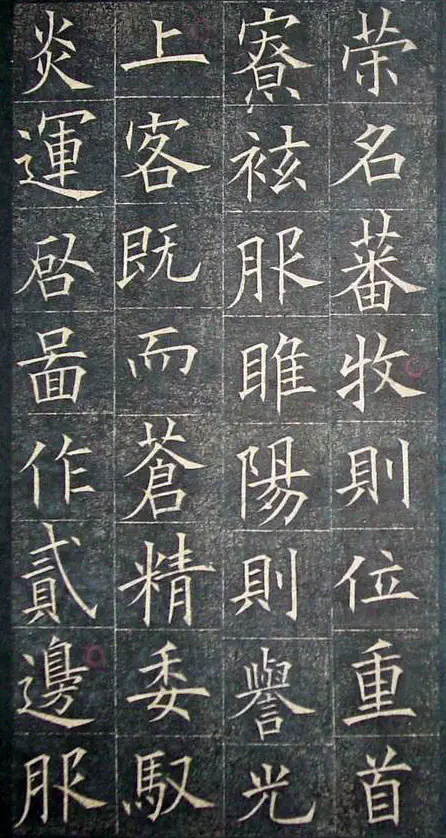 策名蕃牧則位重首
寮袨服睢陽則譽光
上客既而蒼精委馭
炎運啓圖作貳邊服